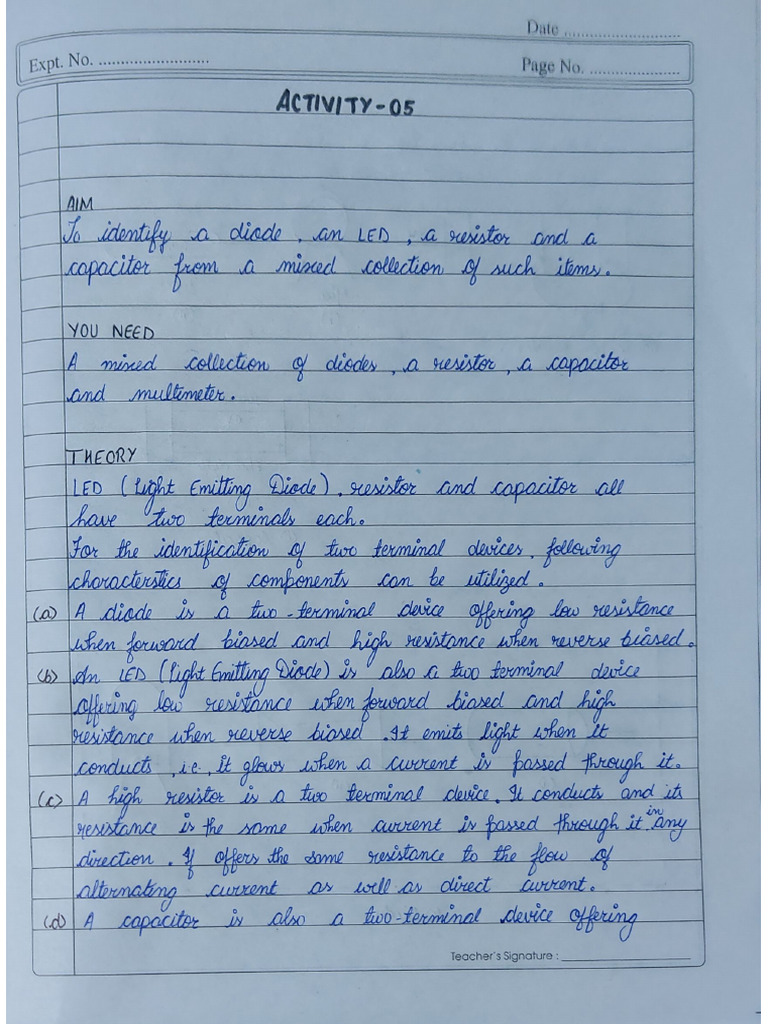 Date ..............................
Expt. No. ............................
Page No. .......................
ACTIVITY-05
AIM
To identify a diode, an LED, a resistor and a
capacitor from a mixed collection of such items.
YOU NEED
A mixed collection of diodes, a resistor, a capacitor
and multimeter.
THEORY
LED (Light Emitting Diode), resistor and capacitor all
have two terminals each.
For the identification of two terminal devices, following
characterstics of components can be utilized.
(a) A diode is a two-terminal device offering low resistance
when forward biased and high resistance when reverse biased.
(b) An LED (Light Emitting Diode) is also a two terminal device
offering low resistance when forward biased and high
resistance when reverse biased. It emits light when it
conducts, i.e., it glows when a current is passed through it.
(c) A high resistor is a two terminal device. It conducts and its
resistance is the same when current is passed through it in any
direction. If offers the same resistance to the flow of
alternating current as well as direct current.
(d) A capacitor is also a two-terminal device offering
Teacher's Signature : ____________________